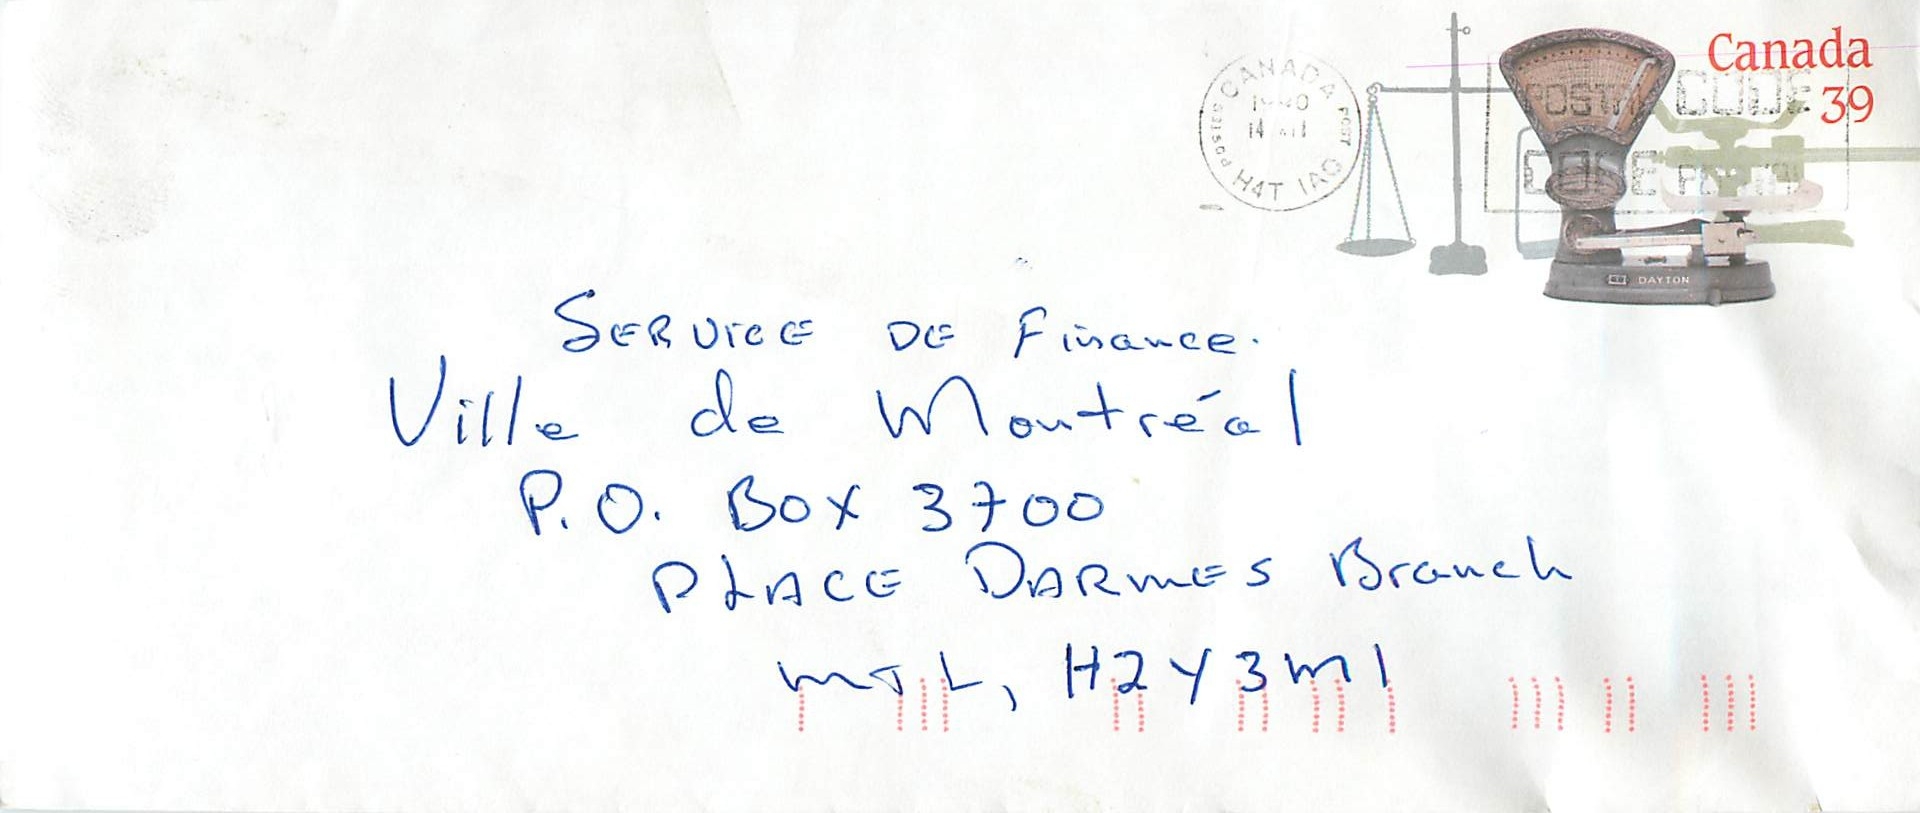 Canada
39
CANADA
POSTES POST
14
H4T 1A0
POSTAL CODE
CODE POSTAL
DAYTON
SERVICE DE Finance.
Ville de Montréal
P.O. BOX 3700
PLACE DARMES Branch
MTL, H2Y3M1